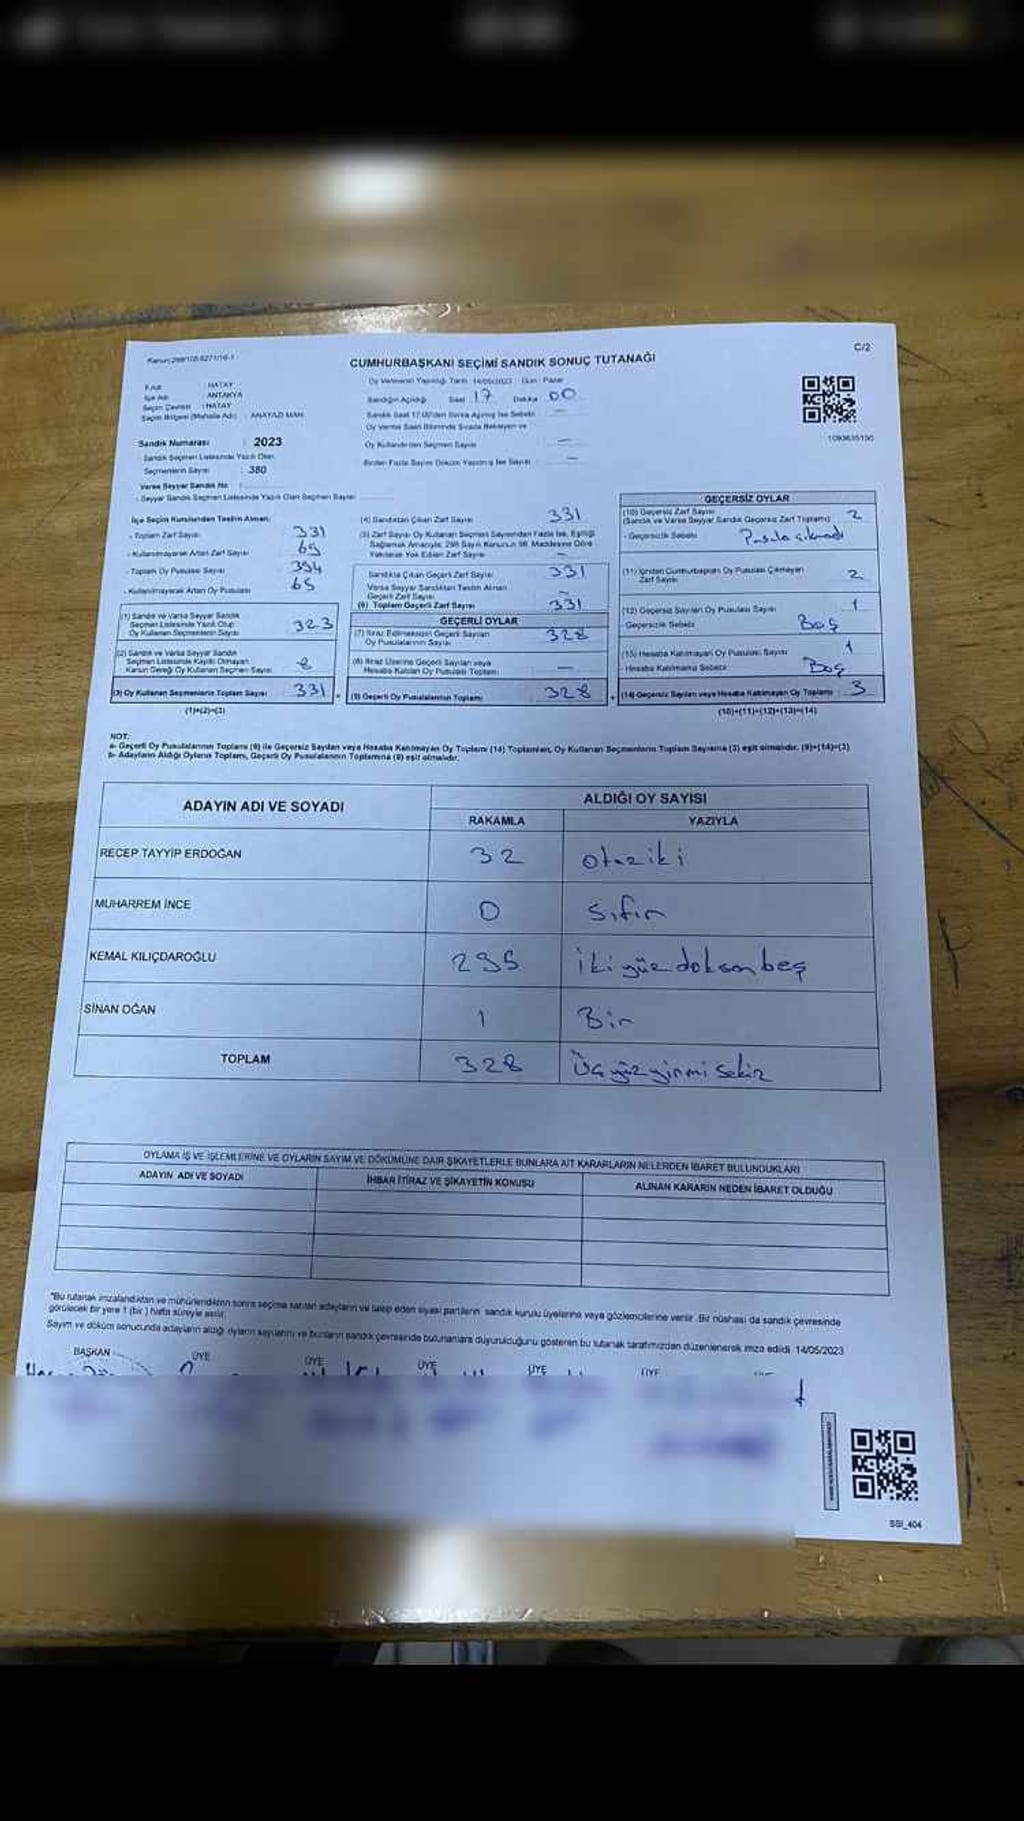 Kanun:298/105 6271/16-1
C/2
CUMHURBAŞKANI SEÇİMİ SANDIK SONUÇ TUTANAĞI
İli Adı : HATAY
İlçe Adı : ANTAKYA
Seçim Çevresi : HATAY
Seçim Bölgesi (Mahalle Adı) : ANAYAZI MAH.
Sandık Numarası : 2023
Sandık Seçmen Listesinde Yazılı Olan
Seçmenlerin Sayısı : 380
Varsa Seyyar Sandık No :
- Seyyar Sandık Seçmen Listesinde Yazılı Olan Seçmen Sayısı
Oy Vermenin Yapıldığı Tarih : 14/05/2023 Gün : Pazar
Sandığın Açıldığı Saat 17 Dakika 00
Sandık Saat 17.00'den Sonra Açılmış İse Sebebi —
Oy Verme Saati Bitiminde Sırada Bekleyen ve
Oy Kullandırılan Seçmen Sayısı —
Birden Fazla Sayım Döküm Yapılmış İse Sayısı —
1093635150
İlçe Seçim Kurulundan Teslim Alınan:
- Toplam Zarf Sayısı 331
- Kullanılmayarak Artan Zarf Sayısı 65
- Toplam Oy Pusulası Sayısı 394
- Kullanılmayarak Artan Oy Pusulası 65
(1) Sandık ve Varsa Seyyar Sandık
Seçmen Listesinde Yazılı Olup
Oy Kullanan Seçmenlerin Sayısı 323
(2) Sandık ve Varsa Seyyar Sandık
Seçmen Listesinde Kayıtlı Olmayan
Kanun Gereği Oy Kullanan Seçmen Sayısı 8
(3) Oy Kullanan Seçmenlerin Toplam Sayısı 331
(1)+(2)=(3)
(4) Sandıktan Çıkan Zarf Sayısı 331
(5) Zarf Sayısı Oy Kullanan Seçmen Sayısından Fazla İse, Eşitliği
Sağlamak Amacıyla; 298 Sayılı Kanunun 98. Maddesine Göre
Yakılarak Yok Edilen Zarf Sayısı —
Sandıkta Çıkan Geçerli Zarf Sayısı 331
Varsa Seyyar Sandıktan Teslim Alınan
Geçerli Zarf Sayısı —
(6) Toplam Geçerli Zarf Sayısı 331
GEÇERLİ OYLAR
(7) İtiraz Edilmeksizin Geçerli Sayılan
Oy Pusulalarının Sayısı 328
(8) İtiraz Üzerine Geçerli Sayılan veya
Hesaba Katılan Oy Pusulaları Toplamı —
(9) Geçerli Oy Pusulalarının Toplamı 328
GEÇERSİZ OYLAR
(10) Geçersiz Zarf Sayısı 2
(Sandık ve Varsa Seyyar Sandık Geçersiz Zarf Toplamı)
- Geçersizlik Sebebi Pusula çıkmadı
(11) İçinden Cumhurbaşkanı Oy Pusulası Çıkmayan
Zarf Sayısı 2
(12) Geçersiz Sayılan Oy Pusulası Sayısı 1
- Geçersizlik Sebebi Boş
(13) Hesaba Katılmayan Oy Pusulası Sayısı 1
- Hesaba Katılmama Sebebi Boş
(14) Geçersiz Sayılan veya Hesaba Katılmayan Oy Toplamı 3
(10)+(11)+(12)+(13)=(14)
NOT:
a- Geçerli Oy Pusulalarının Toplamı (9) ile Geçersiz Sayılan veya Hesaba Katılmayan Oy Toplamı (14) Toplamları, Oy Kullanan Seçmenlerin Toplam Sayısına (3) eşit olmalıdır. (9)+(14)=(3)
b- Adayların Aldığı Oyların Toplamı, Geçerli Oy Pusulalarının Toplamına (9) eşit olmalıdır.
ADAYIN ADI VE SOYADI
ALDIĞI OY SAYISI
RAKAMLA YAZIYLA
RECEP TAYYİP ERDOĞAN 32 otuziki
MUHARREM İNCE 0 Sıfır
KEMAL KILIÇDAROĞLU 295 ikiyüzdoksanbeş
SİNAN OĞAN 1 Bir
TOPLAM 328 Üçyüzyirmisekiz
OYLAMA İŞ VE İŞLEMLERİNE VE OYLARIN SAYIM VE DÖKÜMÜNE DAİR ŞİKAYETLERLE BUNLARA AİT KARARLARIN NELERDEN İBARET BULUNDUKLARI
ADAYIN ADI VE SOYADI
İHBAR İTİRAZ VE ŞİKAYETİN KONUSU
ALINAN KARARIN NEDEN İBARET OLDUĞU
"Bu tutanak imzalandıktan ve mühürlendikten sonra seçime katılan adayların ve talep eden siyasi partilerin sandık kurulu üyelerine veya gözlemcilerine verilir. Bir nüshası da sandık çevresinde
görülecek bir yere 1 (bir) hafta süreyle asılır.
Sayım ve döküm sonucunda adayların aldığı oyların sayılarını ve bunların sandık çevresinde bulunanlara duyurulduğunu gösteren bu tutanak tarafımızdan düzenlenerek imza edildi. 14/05/2023
BAŞKAN ÜYE ÜYE ÜYE ÜYE ÜYE
SSI_404